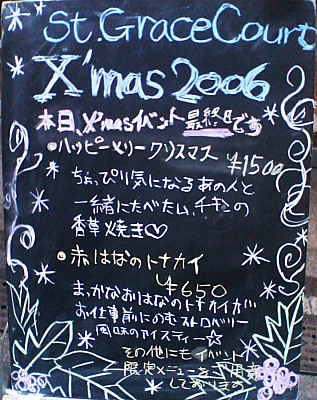 St.GraceCourt
X'mas2006
本日、X'masイベント最終日です
●ハッピーメリークリスマス
¥1500
ちょっぴり気になるあの人と
一緒にたべたい、チキンの
香草焼き♡
●赤はなのトナカイ
¥650
まっかなおはなのトナカイが
お仕事前にのむストロベリー
風味のアイスティー☆
その他にもイベント
限定メニューをご用意
しております